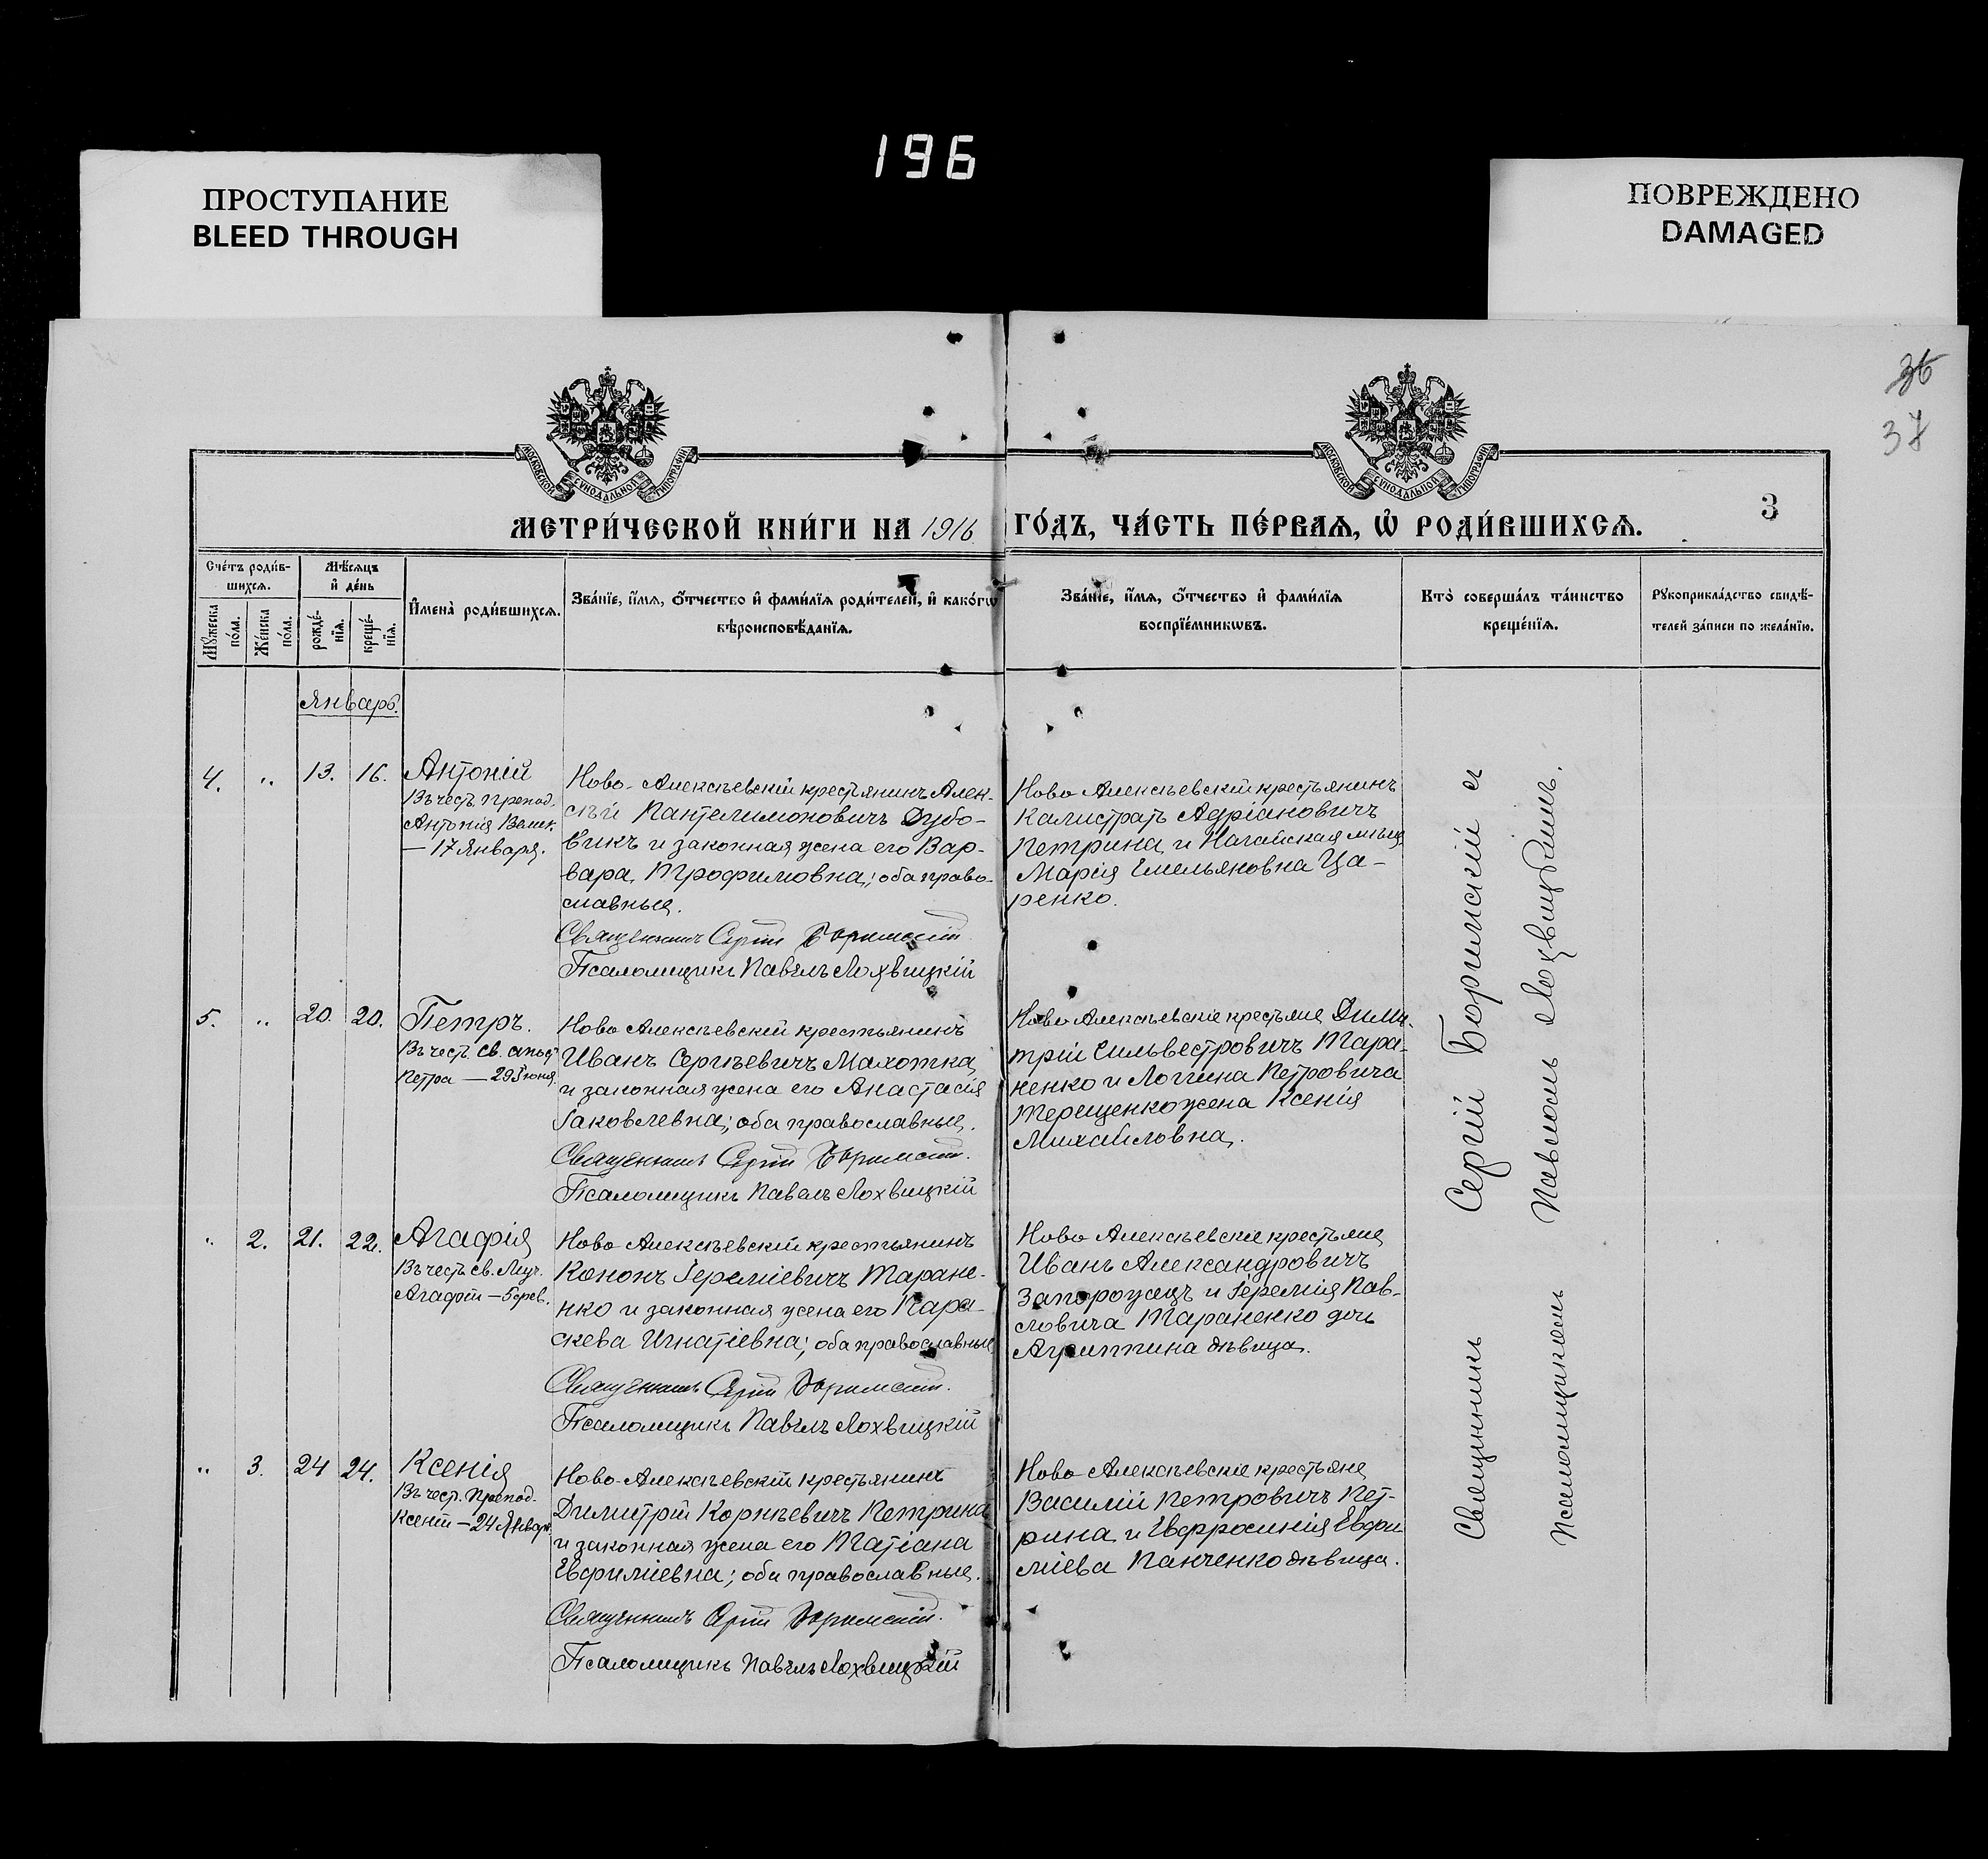 196
ПРОСТУПАНИЕ
BLEED THROUGH
ПОВРЕЖДЕНО
DAMAGED
36
37
МОСКОВСКОЙ СУНОДАЛЬНОЙ ТИПОГРАФІИ
МОСКОВСКОЙ СУНОДАЛЬНОЙ ТИПОГРАФІИ
3
МЕТРИ́ЧЕСКОЙ КНИ́ГИ НА 1916 ГО́ДЪ, ЧА́СТЬ ПЕ́РВАѦ, Ѡ҆ РОДИ́ВШИХСѦ.
Сче́тъ роди́в-
шихсѧ.
Мѣ́сѧцъ
и҆ де́нь
Мꙋ́жеска
по́ла.
Же́нска
по́ла.
рожде́-
нїѧ.
креще́-
нїѧ.
И҆мена̀ роди́вшихсѧ.
Зва́нїе, и҆́мѧ, ѻ҆́тчество и҆ фами́лїѧ роди́телей, и҆ како́гѡ
вѣроисповѣ́данїѧ.
Зва́нїе, и҆́мѧ, ѻ҆́тчество и҆ фами́лїѧ
воспрїе́мникѡвъ.
Кто̀ соверша́лъ та́инство
креще́нїѧ.
Рꙋкоприкла́дство свидѣ́-
телей за́писи по жела́нїю.
Январь.
4. „ 13. 16.
Антоній
Въ честь препод.
Антонія Велик.
— 17 Января.
Ново-Алексѣевскій крестьянинъ Алек-
сѣй Пантелимоновичъ Дубо-
викъ и законная жена его Вар-
вара Трофимовна; оба право-
славные.
Священникъ Сергій Боримскій
Псаломщикъ Павелъ Лохвицкій
Ново Алексѣевскій крестьянинъ
Калистратъ Адріановичъ
Петрина и Нагайская мѣщ.
Марія Емельяновна Ца-
ренко.
5. „ 20. 20.
Петръ.
Въ честь св. апост.
Петра — 29 Іюня.
Ново Алексѣевскій крестьянинъ
Иванъ Сергѣевичъ Махотка
и законная жена его Анастасія
Іаковлевна; оба православные.
Священникъ Сергій Боримскій.
Псаломщикъ Павелъ Лохвицкій
Ново Алексѣевскіе крестьяне Дими-
трій Сильвестровичъ Тара-
ненко и Логгина Петровича
Терещенко жена Ксенія
Михайловна.
„ 2. 21. 22.
Агафія
Въ честь св. Муч.
Агафіи — 5 фев.
Ново Алексѣевскій крестьянинъ
Кононъ Іереміевичъ Таране-
нко и законная жена его Пара-
скева Игнатіевна; оба православные
Священникъ Сергій Боримскій.
Псаломщикъ Павелъ Лохвицкій
Ново Алексѣевскіе крестьяне
Иванъ Александровичъ
Запорожецъ и Іеремія Пав-
ловича Тараненко дочь
Агриппина дѣвица.
„ 3. 24 24.
Ксенія
Въ чест. Препод.
Ксеніи — 24 Январ.
Ново-Алексѣевскій крестьянинъ
Димитрій Корнѣевичъ Петрина
и законная жена его Татіана
Евфиміевна; оба православные.
Священникъ Сергій Боримскій.
Псаломщикъ Павелъ Лохвицкій
Ново Алексѣевскіе крестьяне
Василій Петровичъ Пет-
рина и Евфросинія Евфи
міева Панченко дѣвица.
Священникъ Сергій Боримскій съ
Псаломщикомъ Павломъ Лохвицкимъ.